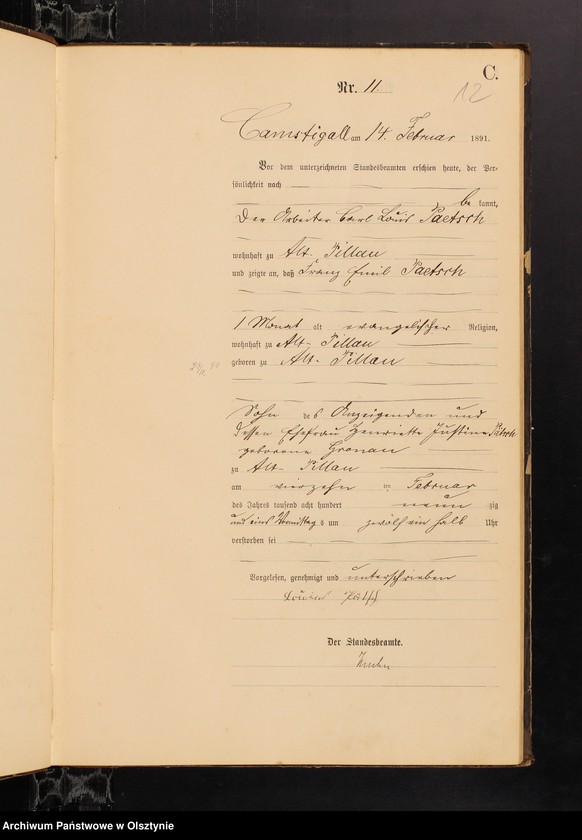 C.
Nr. 11.
12
Camstigall am 14. Februar 1891.
Vor dem unterzeichneten Standesbeamten erschien heute, der Per-
sönlichkeit nach
be kannt,
der Arbeiter Carl Louis Paetsch
wohnhaft zu Alt-Pillau
und zeigte an, daß Franz Emil Paetsch
1 Monat alt evangelischer Religion,
wohnhaft zu Alt-Pillau
geboren zu Alt-Pillau
Sohn des Anzeigenden und
dessen Ehefrau Henriette Justine Paetsch
geborene Gronau
zu Alt-Pillau
am vierzehn ten Februar
des Jahres tausend acht hundert neun zig
und eins Vormittag s um zwölf ein halb Uhr
verstorben sei
Vorgelesen, genehmigt und unterschrieben
Der Standesbeamte.
Archiwum Państwowe w Olsztynie